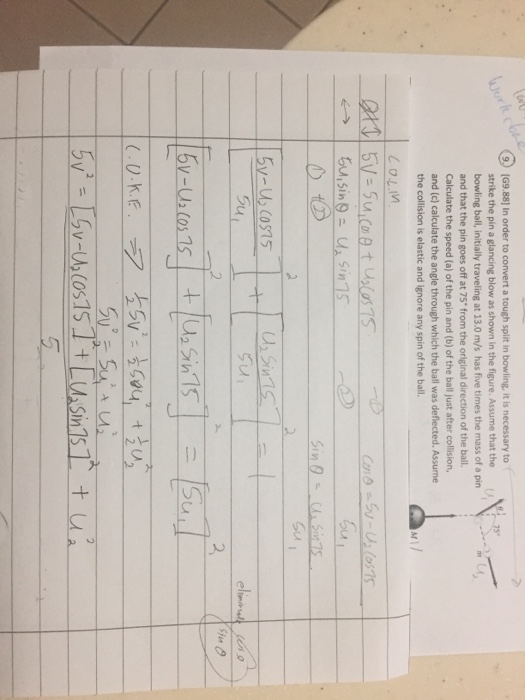 work
9. [G9.88] In order to convert a tough split in bowling, it is necessary to
strike the pin a glancing blow as shown in the figure. Assume that the
bowling ball, initially traveling at 13.0 m/s has five times the mass of a pin
and that the pin goes off at 75° from the original direction of the ball.
Calculate the speed (a) of the pin and (b) of the ball just after collision,
and (c) calculate the angle through which the ball was deflected. Assume
the collision is elastic and ignore any spin of the ball.
75°
θ
U₁
U₂
m
M
COLM
5V = 5U₁ cos θ + U₂ cos 75 — ① cos θ = 5V - U₂ cos 75
5U₁
↔ 5U₁ sin θ = U₂ sin 75 — ②
sin θ = U₂ sin 75
5U₁
① + ②
[5V - U₂ cos 75 / 5U₁]² + [U₂ sin 75 / 5U₁]² = 1
eliminate cos θ
sin θ
[5V - U₂ cos 75]² + [U₂ sin 75]² = [5U₁]²
C.O.K.E. ⇒ ½ 5V² = ½ 5U₁² + ½ U₂²
5V² = 5U₁² + U₂²
5V² = [5V - U₂ cos 75]² + [U₂ sin 75]² + U₂²
5